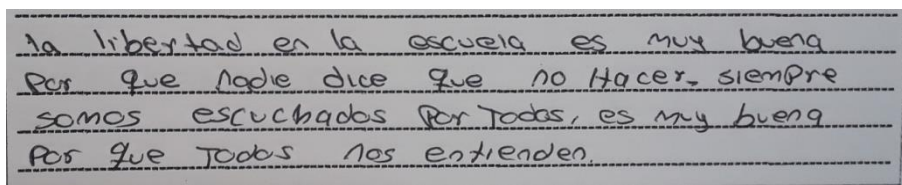 la libertad en la escuela es muy buena
por que nadie dice que no Hacer, siempre
somos escuchados por Todos, es muy buena
por que Todos nos entienden.